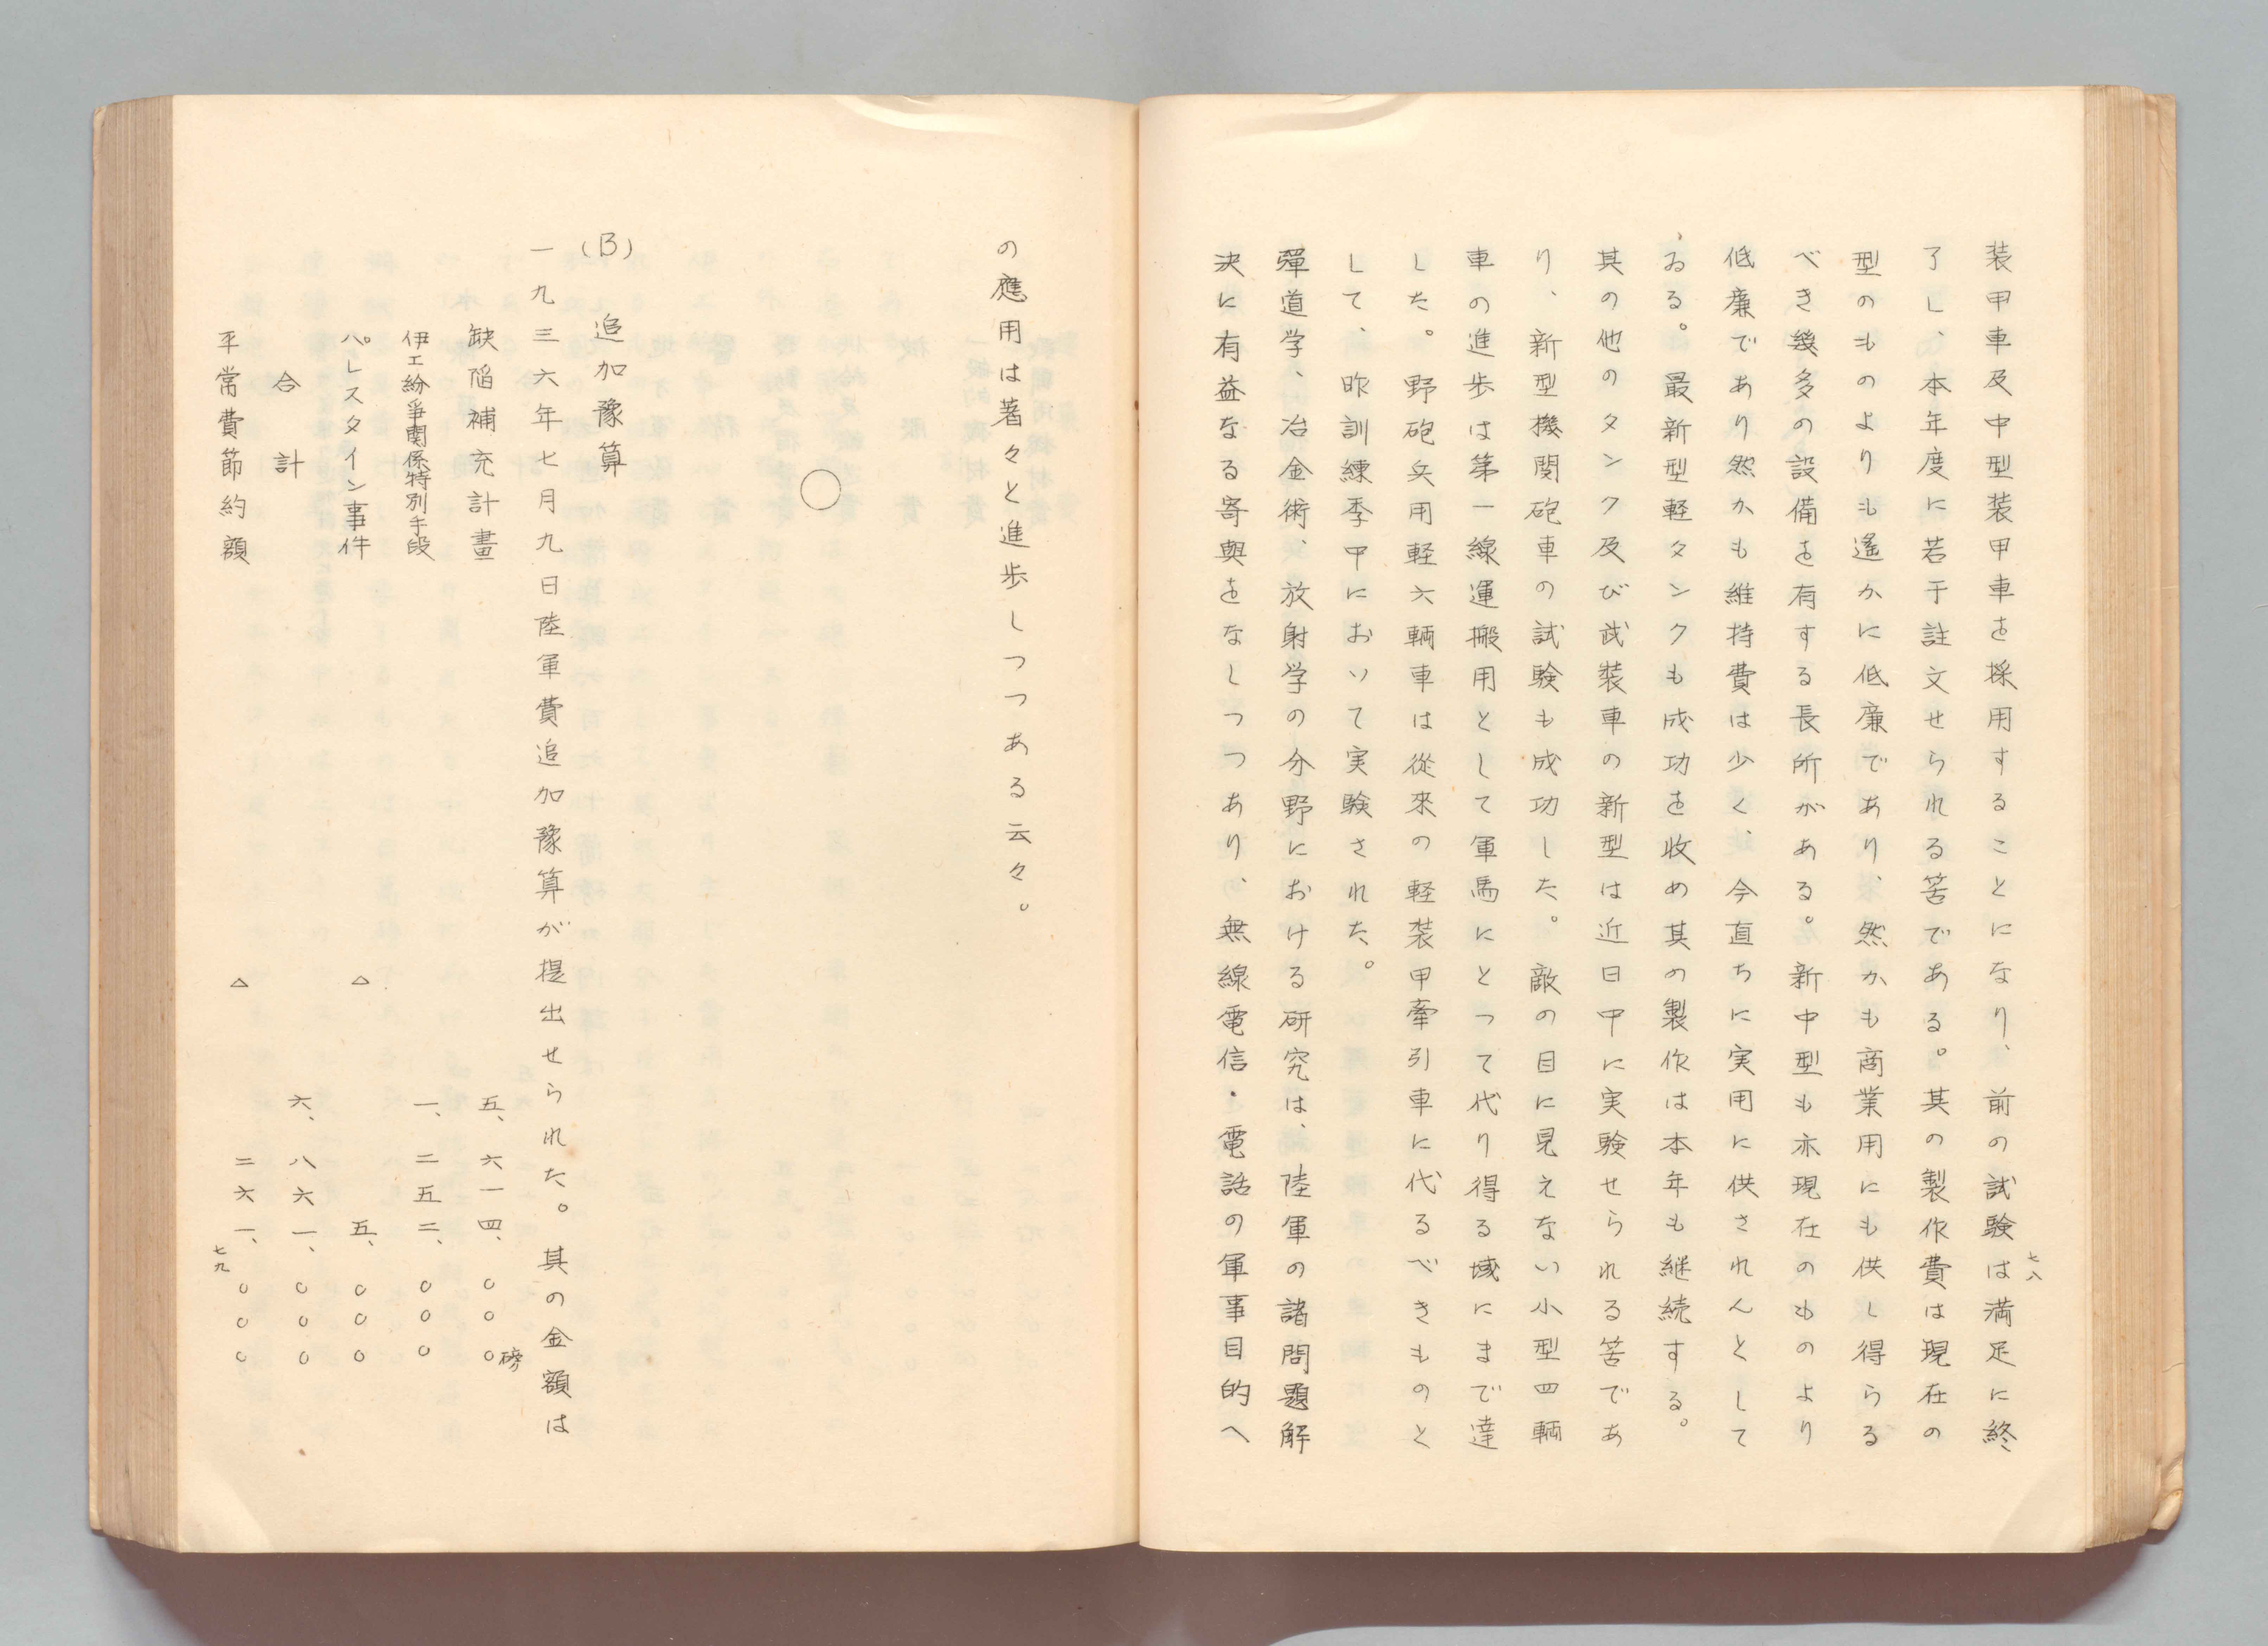 装甲車及中型装甲車を採用することになり、前の試験は満足に終
了し、本年度に若干註文せられる筈である。其の製作費は現在の
型のものよりも遙かに低廉であり、然かも商業用にも供し得らる
べき幾多の設備を有する長所がある。新中型も亦現在のものより
低廉であり然かも維持費は少く、今直ちに実用に供されんとして
ゐる。最新型軽タンクも成功を收め其の製作は本年も継続する。
其の他のタンク及び武装車の新型は近日中に実験せられる筈であ
り、新型機関砲車の試験も成功した。敵の目に見えない小型四輌
車の進歩は第一線運搬用として軍馬にとつて代り得る域にまで達
した。野砲兵用軽六輌車は從來の軽装甲牽引車に代るべきものと
して、昨訓練季中において実験された。
彈道学、冶金術、放射学の分野における研究は、陸軍の諸問題解
決に有益なる寄與をなしつつあり、無線電信・電話の軍事目的へ
七八
の應用は著々と進歩しつつある云々。
○
(B) 追加豫算
一九三六年七月九日陸軍費追加豫算が提出せられた。其の金額は
缺陷補充計畫 五、六一四、〇〇〇磅
伊エ紛爭関係特別手段 一、二五二、〇〇〇
パレスタイン事件 △ 五、〇〇〇
合計 六、八六一、〇〇〇
平常費節約額 △ 二六一、〇〇〇
七九